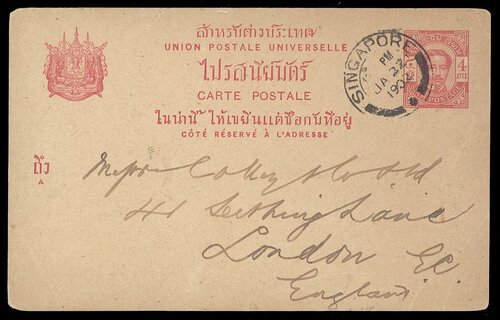 สำหรับต่างประเทศ
UNION POSTALE UNIVERSELLE
ไปรสนียบัตร์
CARTE POSTALE
ในน่านี้ ให้เขยีนแต่ชื่อกับที่อยู่
CÔTÉ RÉSERVÉ À L'ADRESSE
SINGAPORE
PM
JA 22
1902
4
ATTS
ถึง
A
Messrs
41 Seething Lane
London EC.
England